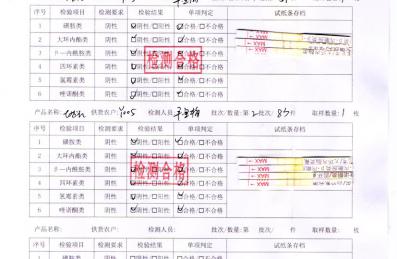 序号 检验项目 检测要求 检验结果 单项判定 试纸条存档
1 磺胺类 阴性 ☑阴性/□阳性 ☑合格/□不合格
2 大环内酯类 阴性 ☑阴性/□阳性 ☑合格/□不合格
3 β—内酰胺类 阴性 阴性/□阳性 ☑合格/□不合格
4 四环素类 阴性 阴性/□阳性 ☑合格/□不合格
5 氯霉素类 阴性 ☑阴性/□阳性 ☑合格/□不合格
6 喹诺酮类 阴性 ☑阴性/□阳性 ☑合格/□不合格
检测合格
MAX
产品名称: 供货农户: Y005 检测人员: 批次/数量:第 批次/ 件 取样数量: 1 枚
序号 检验项目 检测要求 检验结果 单项判定 试纸条存档
1 磺胺类 阴性 ☑阴性/□阳性 ☑合格/□不合格
2 大环内酯类 阴性 ☑阴性/□阳性 ☑合格/□不合格
3 β—内酰胺类 阴性 阴性/□阳性 ☑合格/□不合格
4 四环素类 阴性 阴性/□阳性 ☑合格/□不合格
5 氯霉素类 阴性 ☑阴性/□阳性 ☑合格/□不合格
6 喹诺酮类 阴性 ☑阴性/□阳性 ☑合格/□不合格
检测合格
MAX
MAX
MAX
产品名称: 供货农户: 检测人员: 批次/数量:第 批次/ 件 取样数量: 枚
序号 检验项目 检测要求 检验结果 单项判定 试纸条存档